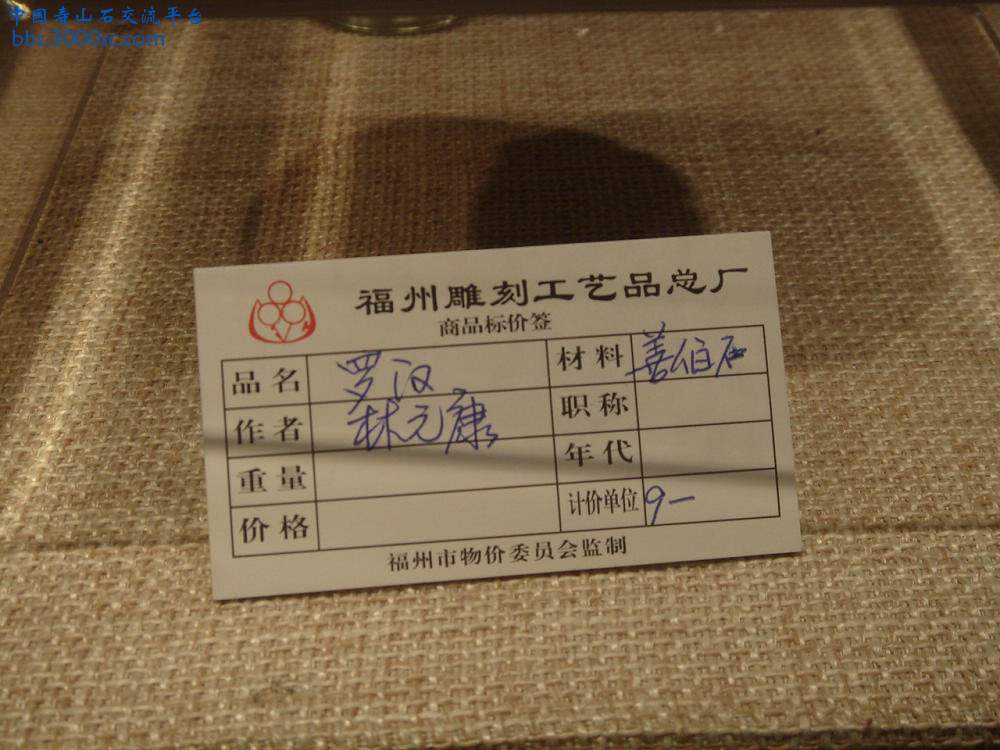 中国寿山石交流平台
bbs.3000y.com
福州雕刻工艺品总厂
商品标价签
品名 罗汉 材料 善伯石
作者 林元康 职称
重量 年代
价格 计价单位 9一
福州市物价委员会监制